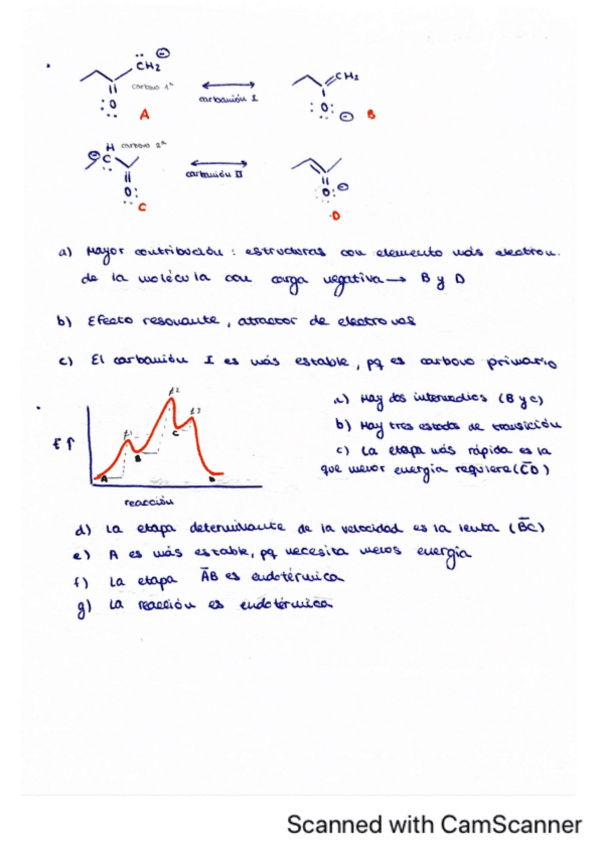 CH2 ⊖
carbono 1º
:O:
A
carbanión I
CH2
:O: ⊖
B
⊖ C H carbono 2º
O:
C
carbanión II
:O: ⊖
D
a) Mayor contribución: estructuras con elemento más electron.
de la molécula con carga negativa → B y D
b) Efecto resonante, atractor de electrones
c) El carbanión I es más estable, pq es carbono primario
E↑
t1
t2
t3
A
B
C
D
reacción
a) Hay dos intermedios (B y C)
b) Hay tres estados de transición
c) La etapa más rápida es la
que menor energía requiere (CD)
d) La etapa determinante de la velocidad es la lenta (BC)
e) A es más estable, pq necesita menos energía
f) La etapa AB es endotérmica
g) La reacción es endotérmica
Scanned with CamScanner